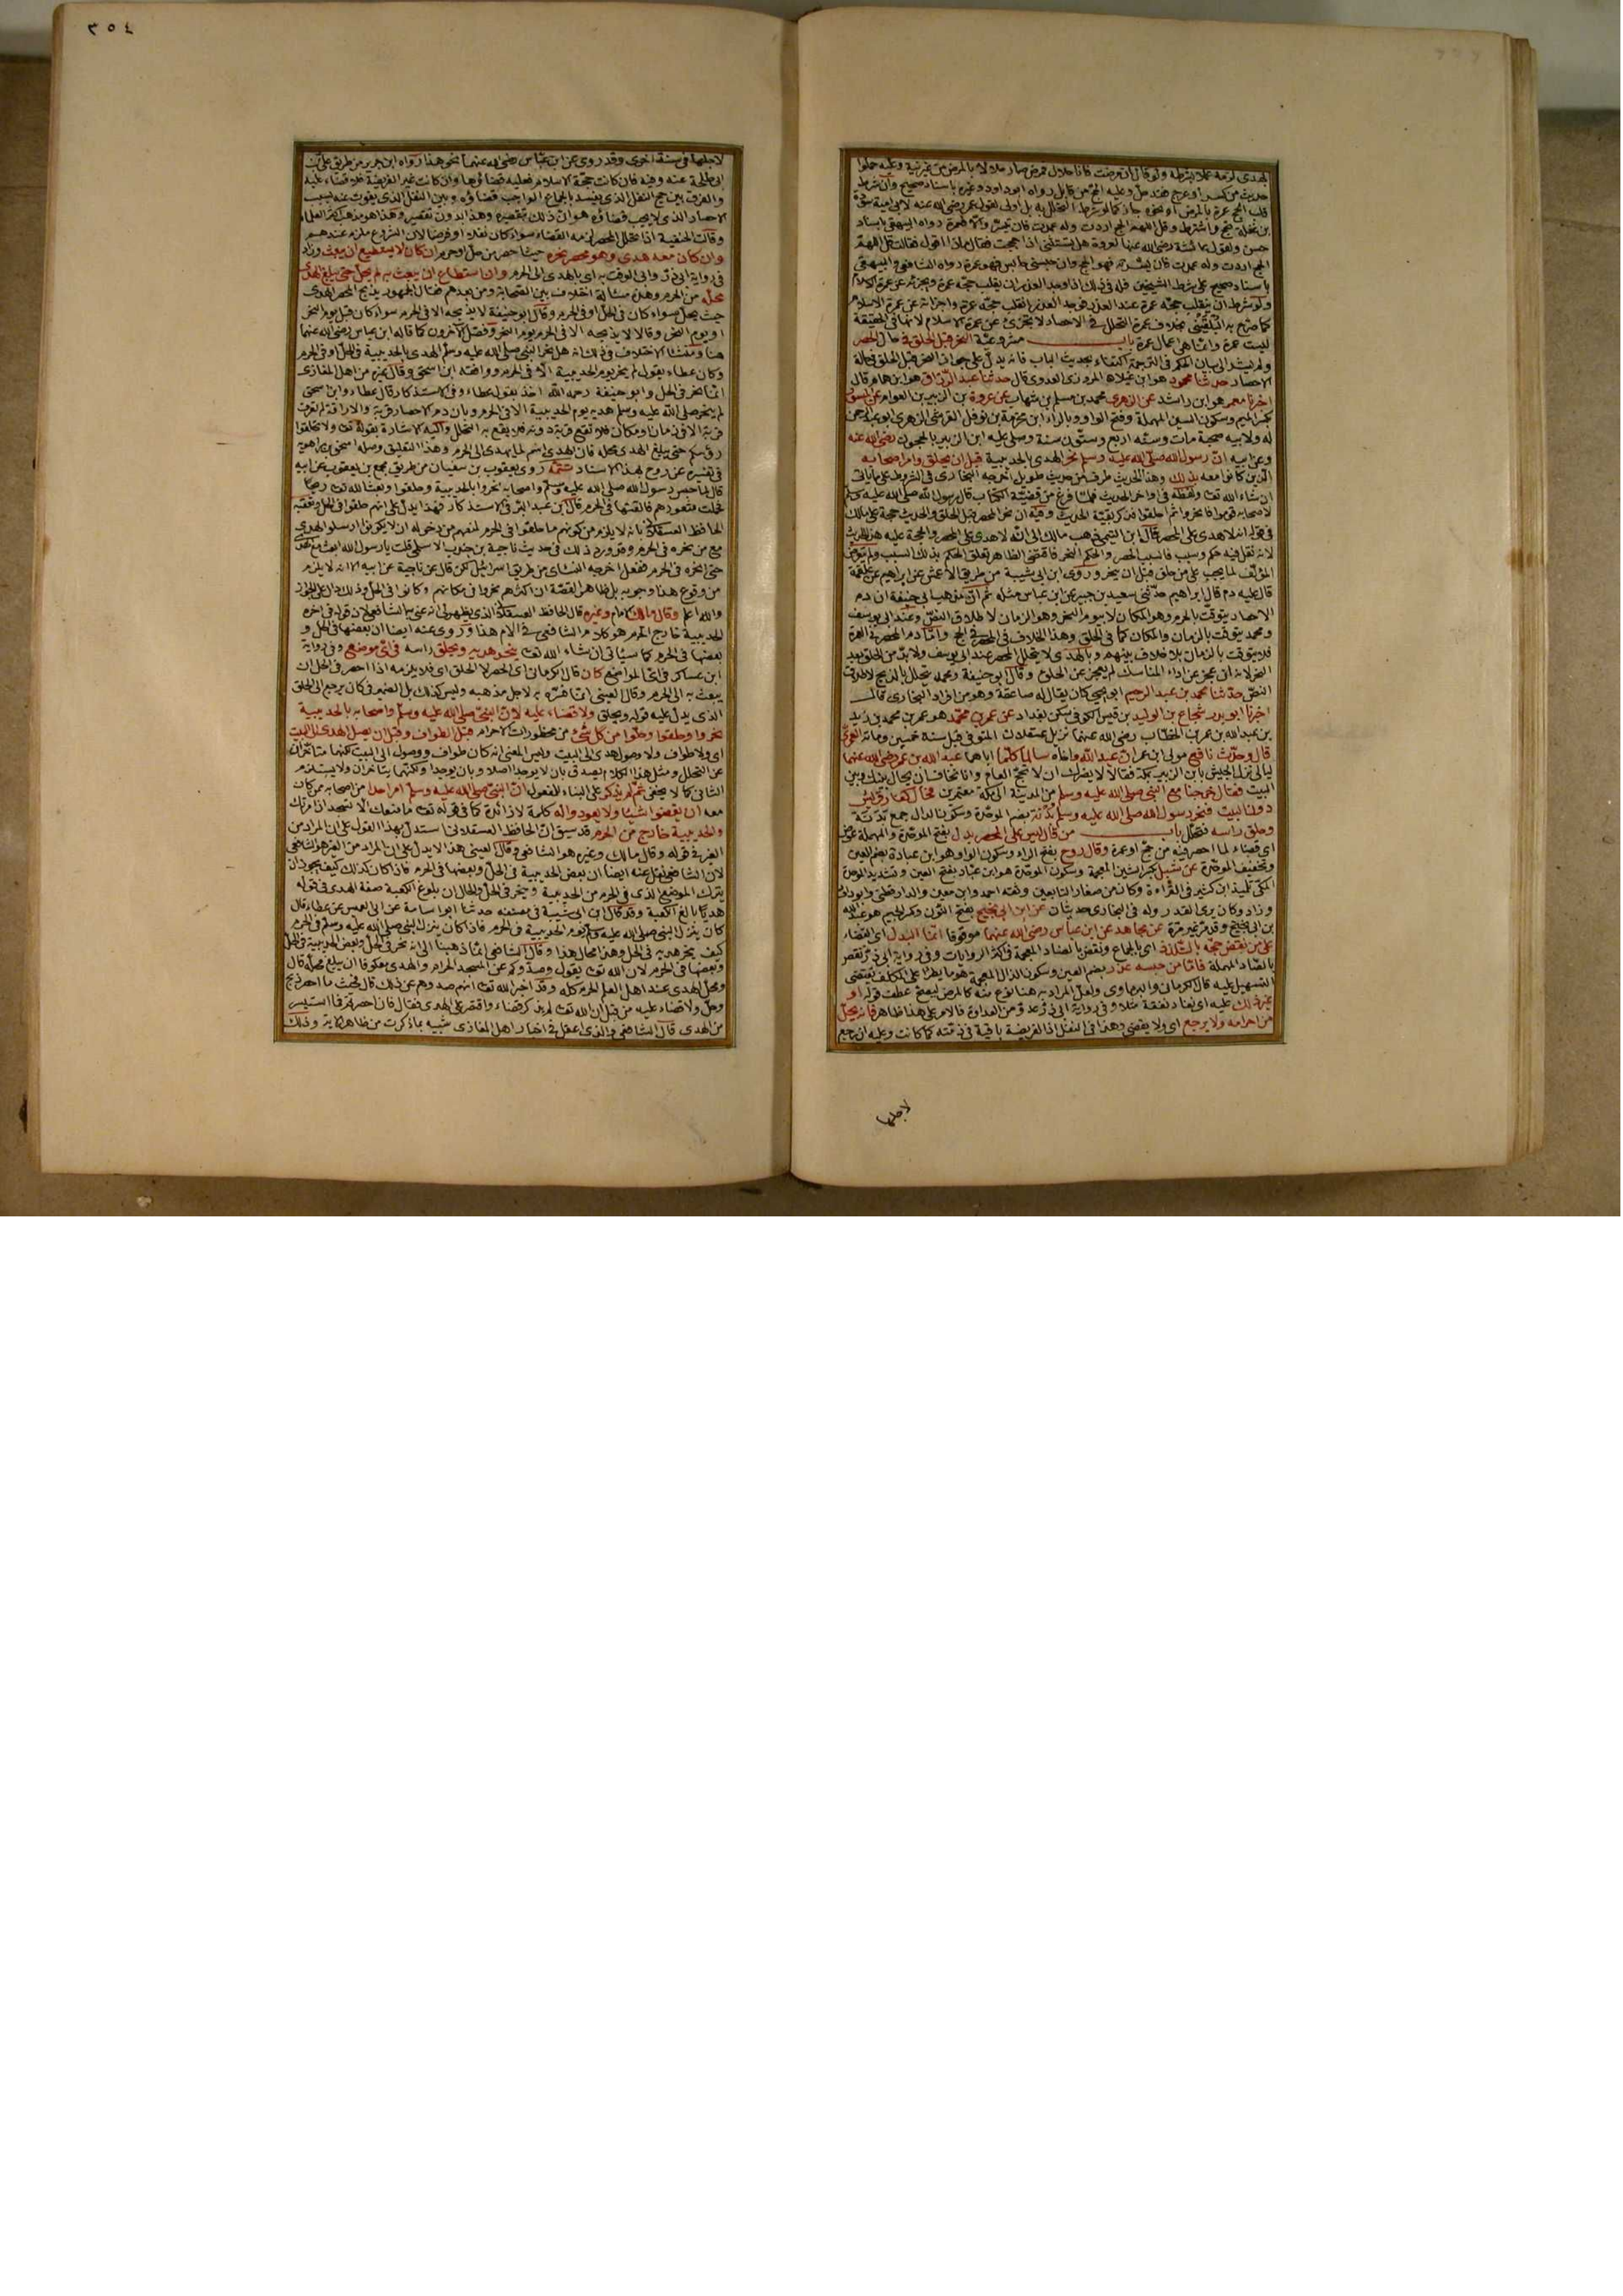 ٣٥٤
لهدى لزمه عملا بشرطه ولو قال ان مرضت فانا حلال فمرض صار حلالا بالمرض من غير نية وعليه حملوا
حديث من كسر او عرج فقد حل وعليه الحج من قابل رواه ابو داود وغيره باسناد صحيح وان شرط
قلب الحج عمرة بالمرض او نحوه جاز كما لو شرط التحلل به بل اولى لقول عمر رضى الله عنه لابى امية سويد
بن غفلة حج واشترط وقل اللهم الحج اردت وله عمدت فان تيسر والا فعمرة رواه البيهقى باسناد
حسن ولقول عائشة رضى الله عنها لعروة هل تستثنى اذا حججت فقال ماذا اقول قالت قل اللهم
الحج اردت وله عمدت فان يسرته فهو الحج وان حبسنى حابس فهو عمرة رواه الشافعى والبيهقى
باسناد صحيح على شرط الشيخين فله فى ذلك اذا وجد العذر ان يقلب حجه عمرة ويجزئه عن عمرة الاسلام
ولو شرط ان ينقلب حجه عمرة عند العذر فوجد العذر انقلب حجه عمرة واجزأته عن عمرة الاسلام
كما صرح به البلقينى بخلاف عمرة التحلل فى الاحصار لا تجزئ عن عمرة الاسلام لانها فى الحقيقة
ليست عمرة وانما هى اعمال عمرة باب مشروعية النحر قبل الحلق فى حال الحصر
ولم يشر الى بيان الحكم فى الترجمة اكتفاء بحديث الباب فانه يدل على جواز النحر قبل الحلق فى حالة
الاحصار حدثنا محمود هو ابن غيلان المروزى العدوى قال حدثنا عبد الرزاق هو ابن همام قال
اخبرنا معمر هو ابن راشد عن الزهرى محمد بن مسلم بن شهاب عن عروة بن الزبير بن العوام عن المسور
بكسر الميم وسكون السين المهملة وفتح الواو وبالراء ابن مخرمة بن نوفل القرشى الزهرى ابو عبد الرحمن
له ولابيه صحبة مات وسنه اربع وستون سنة وصلى عليه ابن الزبير بالحجون رضى الله عنه
وعن ابيه ان رسول الله صلى الله عليه وسلم نحر الهدى بالحديبية قبل ان يحلق وامر اصحابه
الذين كانوا معه بذلك وهذا الحديث طرف من حديث طويل اخرجه البخارى فى الشروط على ما ياتى
ان شاء الله تعالى ولفظه فى اواخر الحديث فلما فرغ من قضية الكتاب قال رسول الله صلى الله عليه وسلم
لاصحابه قوموا فانحروا ثم احلقوا فذكر بقية الحديث وفيه ان نحر المحصر قبل الحلق والحديث حجة على مالك
فى قوله انه لا هدى على المحصر قال ابن التيمى ذهب مالك الى انه لا هدى على المحصر والحجة عليه هذا الحديث
لانه نقل فيه حكم وسبب فالسبب الحصر والحكم النحر فاقتضى الظاهر تعلق الحكم بذلك السبب ولم يتعرض
المؤلف لما يجب على من حلق قبل ان ينحر وروى ابن ابى شيبة من طريق الاعمش عن ابراهيم عن علقمة
قال عليه دم قال ابراهيم حدثنى سعيد بن جبير عن ابن عباس مثله ثم ان مذهب ابى حنيفة ان دم
الاحصار يتوقت بالحرم وهو المكان لا بيوم النحر وهو الزمان لاطلاق النص وعند ابى يوسف
ومحمد يتوقت بالزمان والمكان كما فى الحلق وهذا الخلاف فى المحصر فى الحج واما دم المحصر فى العمرة
فلا يتوقت بالزمان بلا خلاف بينهم وبالهدى لا يتحلل المحصر عند ابى يوسف ولا بد من الحلق بعد
النحر لانه ان عجز عن اداء المناسك لم يعجز عن الحلق وقال ابو حنيفة ومحمد يتحلل بالذبح لاطلاق
النص حدثنا محمد بن عبد الرحيم ابو يحيى كان يقال له صاعقة وهو من افراد البخارى قال
اخبرنا ابو بدر شجاع بن الوليد بن قيس الكوفى سكن بغداد عن عمر بن محمد هو عمر بن محمد بن زيد
بن عبد الله بن عمر بن الخطاب رضى الله عنهما نزيل عسقلان المتوفى قبل سنة خمسين ومائة العمرى
قال وحدث نافع مولى ابن عمر ان عبد الله واخاه سالما كلما اباهما عبد الله بن عمر رضى الله عنهما
ليالى نزل الجيش بابن الزبير بمكة فقالا لا يضرك ان لا تحج العام وانا نخاف ان يحال بينك وبين
البيت فقال خرجنا مع النبى صلى الله عليه وسلم من المدينة الى مكة معتمرين فحال كفار قريش
دون البيت فنحر رسول الله صلى الله عليه وسلم بدنه بضم الموحدة وسكون الدال جمع بدنة
وحلق راسه فتحلل باب من قال ليس على المحصر بدل بفتح الموحدة والمهملة عوض
اى قضاء لما احصر فيه من حج او عمرة وقال روح بفتح الراء وسكون الواو هو ابن عبادة بضم العين
وتخفيف الموحدة عن شبل بكسر الشين المعجمة وسكون الموحدة هو ابن عباد بفتح العين وتشديد الموحدة
المكى تلميذ ابن كثير فى القراءة وكان من صغار التابعين وثقه احمد وابن معين والدارقطنى وابو داود
وزاد وكان يرى القدر وله فى البخارى حديثان عن ابن ابى نجيح بفتح النون وكسر الجيم هو عبد الله
بن ابى نجيح وقد مر غير مرة عن مجاهد عن ابن عباس رضى الله عنهما موقوفا انما البدل اى القضاء
على من نقض حجه بالتلذذ اى بالجماع ونقض بالضاد المعجمة فى اكثر الروايات وفى رواية ابى ذر نقص
بالصاد المهملة فاما من حبسه عذر بضم العين وسكون الذال المعجمة هو ما يطرأ على المكلف يقتضى
التسهيل عليه قال الكرمانى والبرماوى ولعل المراد به هنا نوع منه كالمرض ليصح عطف قوله او
غير ذلك عليه اى نفاد نفقة مثلا وفى رواية ابى ذر عدو من العداوة فالامر على هذا ظاهر فانه يحل
من احرامه ولا يرجع اى ولا يقضى وهذا فى النفل اذا الفريضة باقية فى ذمته كما كانت وعليه ان يرجع
لاجلها
لاجلها فى سنة اخرى وقد روى عن ابن عباس رضى الله عنهما نحو هذا رواه ابن جرير من طريق على بن
ابى طلحة عنه وفيه فان كانت حجة الاسلام فعليه قضاؤها وان كانت غير الفريضة فلا قضاء عليه
والفرق بين حج النفل الذى يفسد بالجماع الواجب قضاؤه وبين النفل الذى يفوت عنه بسبب
الاحصار الذى لا يجب قضاؤه هو ان ذلك بتقصيره وهذا بدون تقصير وهذا هو مذهب اكثر العلماء
وقالت الحنفية اذا تحلل المحصر لزمه القضاء سواء كان نفلا او فرضا لان الشروع ملزم عندهم
وان كان معه هدى وهو محصر نحره حيث احصر من حل او حرم ان كان لا يستطيع ان يبعث وزاد
فى رواية ابى ذر وابى الوقت به اى بالهدى الى الحرم وان استطاع ان يبعث به لم يحل حتى يبلغ الهدى
محله من الحرم وهذه مسألة اختلاف بين الصحابة ومن بعدهم فقال الجمهور يذبح المحصر الهدى
حيث يحل سواء كان فى الحل او فى الحرم وقال ابو حنيفة لا يذبحه الا فى الحرم سواء كان قبل يوم النحر
او يوم النحر وقالا لا يذبحه الا فى الحرم يوم النحر وفصل الآخرون كما قاله ابن عباس رضى الله عنهما
هنا ومنشأ الاختلاف فى ذلك انه هل نحر النبى صلى الله عليه وسلم الهدى بالحديبية فى الحل او فى الحرم
وكان عطاء يقول لم ينحر يوم الحديبية الا فى الحرم ووافقه ابن اسحق وقال غيره من اهل المغازى
انما نحر فى الحل وابو حنيفة رحمه الله اخذ بقول عطاء وفى الاستذكار قال عطاء وابن اسحق
لم ينحر صلى الله عليه وسلم هديه يوم الحديبية الا فى الحرم وبان دم الاحصار قربة والاراقة لم تعرف
قربة الا فى زمان او مكان فلا تقع قربة دونه فلا يقع به التحلل واليه الاشارة بقوله تعالى ولا تحلقوا
رؤسكم حتى يبلغ الهدى محله فان الهدى اسم لما يهدى الى الحرم وهذا التعليق وصله اسحق بن راهوية
فى تفسيره عن روح بهذا الاسناد تتمة روى يعقوب بن سفيان من طريق مجمع بن يعقوب عن ابيه
قال لما حبس رسول الله صلى الله عليه وسلم واصحابه نحروا بالحديبية وحلقوا وبعث الله تعالى ريحا
فحملت شعورهم فالقتها فى الحرم قال ابن عبد البر فى الاستذكار فهذا يدل على انهم حلقوا فى الحل وتعقبه
الحافظ العسقلانى بانه لا يلزم من كونهم ما حلقوا فى الحرم لمنعهم من دخوله ان لا يكونوا ارسلوا الهدى
مع من نحره فى الحرم وقد ورد ذلك فى حديث ناجية بن جندب الاسلمى قلت يا رسول الله ابعث معى الهدى
حتى انحره فى الحرم ففعل اخرجه النسائى من طريق اسرائيل لكن قال عن ناجية عن ابيه الا انه لا يلزم
من وقوع هذا وجوبه بل ظاهر القصة ان اكثرهم نحروا فى مكانهم وكانوا فى الحل وذلك دال على الجواز
والله اعلم وقال مالك الامام وغيره قال الحافظ العسقلانى الذى يظهر لى انه عنى به الشافعى لان قوله فى اخره
الحديبية خارج الحرم هو كلام الشافعى فى الام هذا وروى عنه ايضا ان بعضها فى الحل و
بعضها فى الحرم كما سياتى ان شاء الله تعالى ينحر هديه ويحلق راسه فى اى موضع وفى رواية
ابن عساكر فى اى المواضع كان قال الكرمانى اى الحصر لا الحلق اى فلا يلزمه اذا احصر فى الحل ان
يبعث به الى الحرم وقال العينى انما فسره به لاجل مذهبه وليس كذلك بل الضمير فى كان يرجع الى الحلق
الذى يدل عليه قوله ويحلق ولا قضاء عليه لان النبى صلى الله عليه وسلم واصحابه بالحديبية
نحروا وحلقوا وحلوا من كل شئ من محظورات الاحرام قبل الطواف وقبل ان يصل الهدى الى البيت
اى ولا طواف ولا وصول هدى الى البيت وليس المعنى انه كان طواف ووصول الى البيت لكنهما متاخران
عن التحلل ومثل هذا الكلام يصدق بان لا يوجدا اصلا وبان يوجدا ولكنهما يتاخران ولا يستلزم
الثانى كما لا يخفى ثم لم يذكر على البناء للمفعول ان النبى صلى الله عليه وسلم امر احدا من اصحابه ممن كان
معه ان يقضوا شيئا ولا يعودوا له كلمة لا زائدة كما فى قوله تعالى ما منعك الا تسجد اذ امرتك
والحديبية خارج من الحرم قد سبق ان الحافظ العسقلانى استدل بهذا القول على ان المراد من
الغير فى قوله وقال مالك وغيره هو الشافعى وقال العينى هذا لا يدل على ان المراد من الغير هو الشافعى
لان الشافعى نقل عنه ايضا ان بعض الحديبية فى الحل وبعضها فى الحرم فاذا كان كذلك كيف يجوز ان
يترك الموضع الذى فى الحرم من الحديبية وينحر فى الحل والحال ان بلوغ الكعبة صفة الهدى فى قوله
هديا بالغ الكعبة وقد قال ابن ابى شيبة فى مصنفه حدثنا ابو اسامة عن ابى العميس عن عطاء قال
كان ينزل النبى صلى الله عليه وسلم يوم الحديبية فى الحرم فاذا كان ينزل النبى صلى الله عليه وسلم فى الحرم
كيف ينحر هديه فى الحل وهذا محال هذا وقال الشافعى انما ذهبنا الى انه نحر فى الحل وبعض الحديبية فى الحل
وبعضها فى الحرم لان الله تعالى يقول وصدوكم عن المسجد الحرام والهدى معكوفا ان يبلغ محله قال
ومحل الهدى عند اهل العلم الحرم كله وقد اخبر الله تعالى انهم صدوهم عن ذلك قال فحيث ما احصر ذبح
وحل ولا قضاء عليه من قبل ان الله تعالى لم يذكر قضاء واقتصر على الهدى فقال فان احصرتم فما استيسر
من الهدى قال الشافعى والذى اعقل فى اخبار اهل المغازى شبيه بما ذكرت من ظاهر الاية وذلك